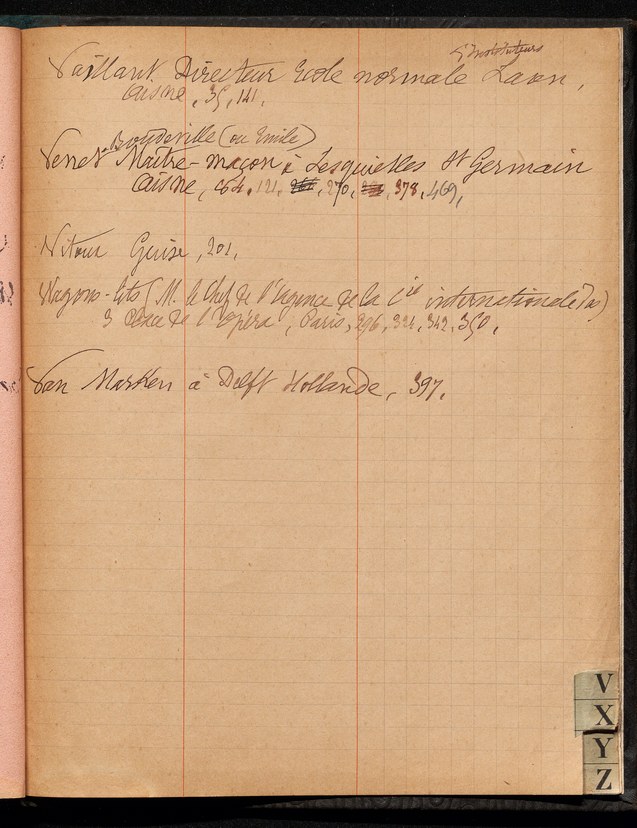 d'Instituteurs
Vaillant Directeur Ecole normale Laon,
Aisne, 35, 141,
Boudeville (ou Emile)
Venet Maître-maçon à Lesquielles St Germain
Aisne, 121, 270, 378, 469,
Nitour Guise, 201,
Wagons-lits (M. le Chef de l'Agence de la Cie internationale des)
3 Place de l'Opéra, Paris, 296, 324, 342, 350,
Van Marken à Delft Hollande, 397,
V
X
Y
Z